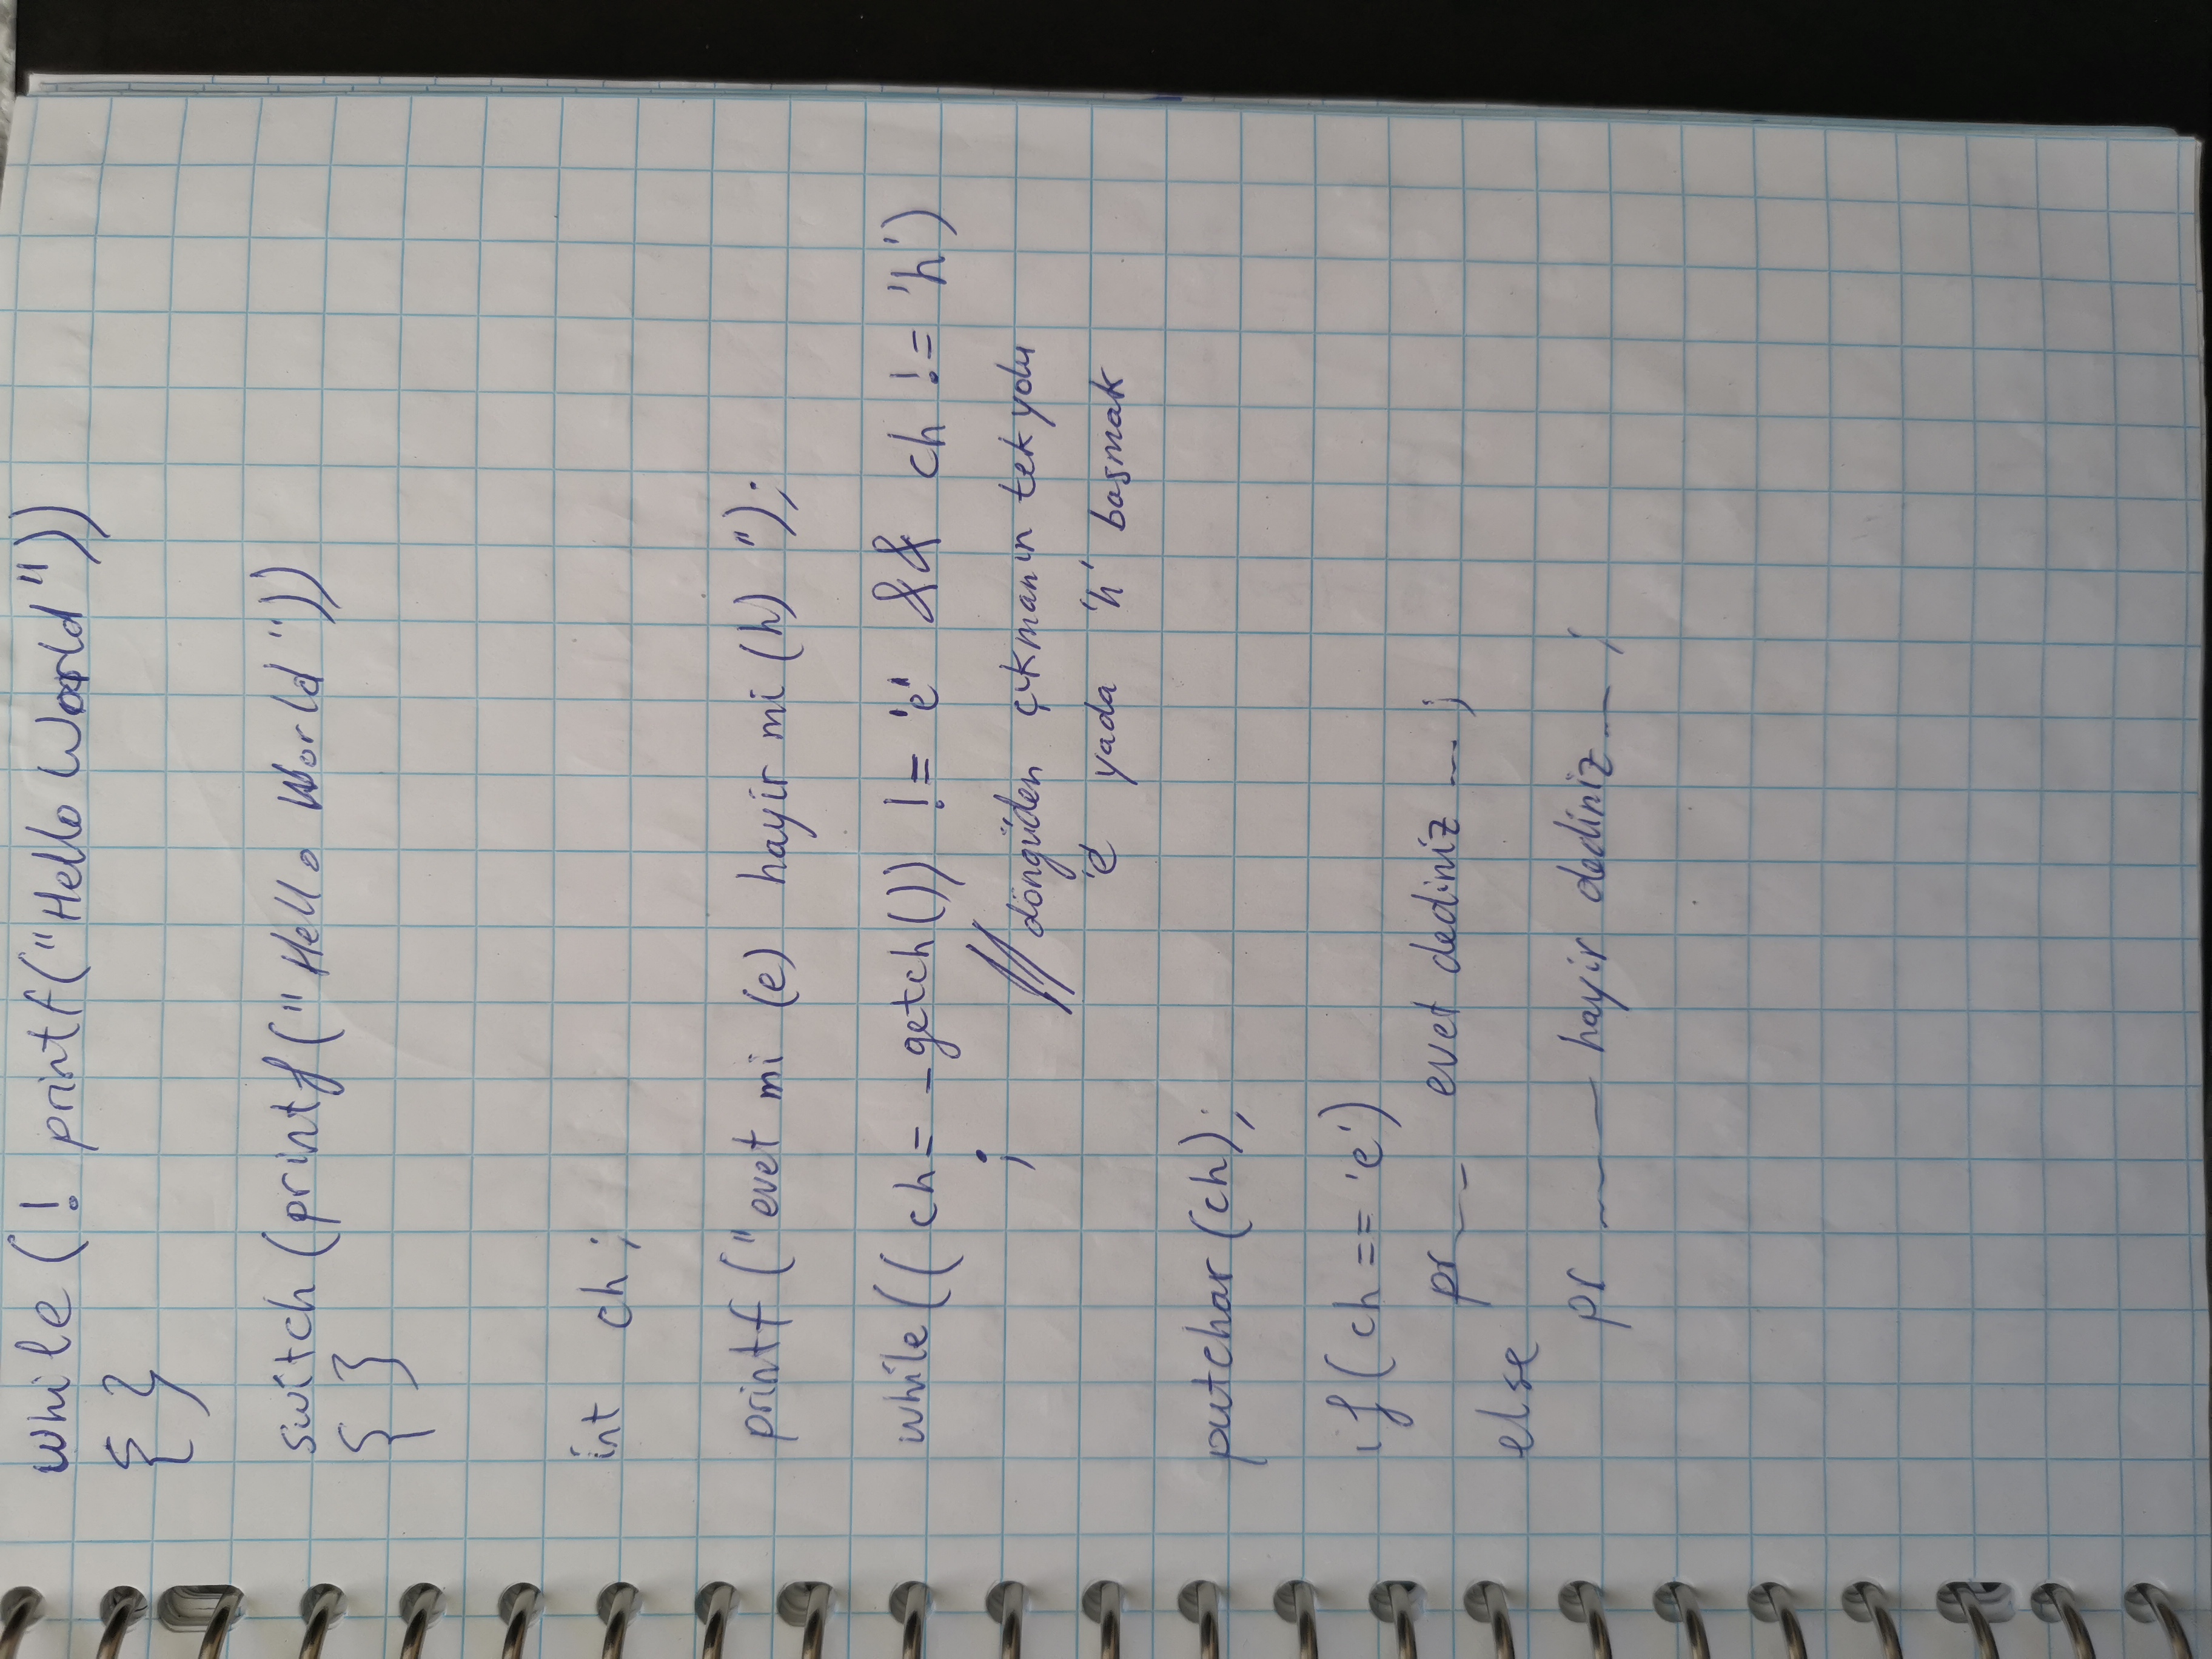 while (! printf("Hello World"))
{ }
switch (printf("Hello World"))
{ }
int ch;
printf ("evet mi (e) hayir mi (h) ");
while (( ch = _getch()) != 'e' && ch != 'h')
; // döngüden çıkmanın tek yolu
'e' yada 'h' basmak
putchar (ch);
if ( ch == 'e')
pr__ evet dediniz __ ;
else
pr ___ hayir dediniz __ ;